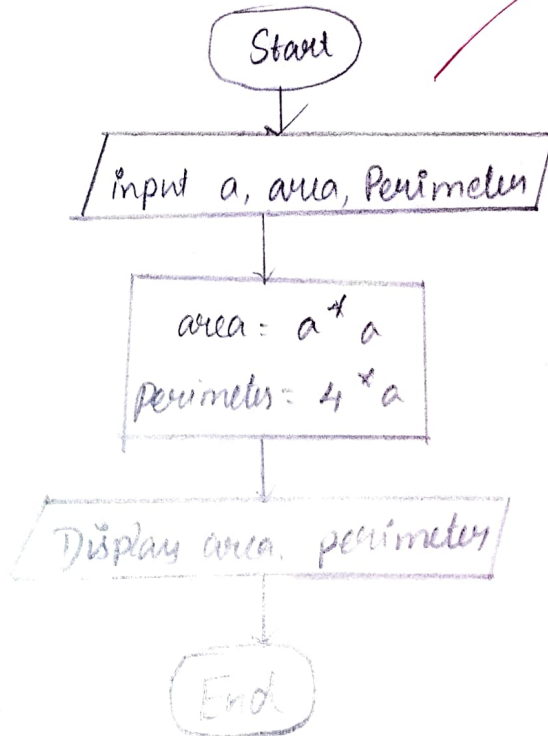 Start
input a, area, Perimeter
area = a * a
perimeter = 4 * a
Display area. perimeter
End